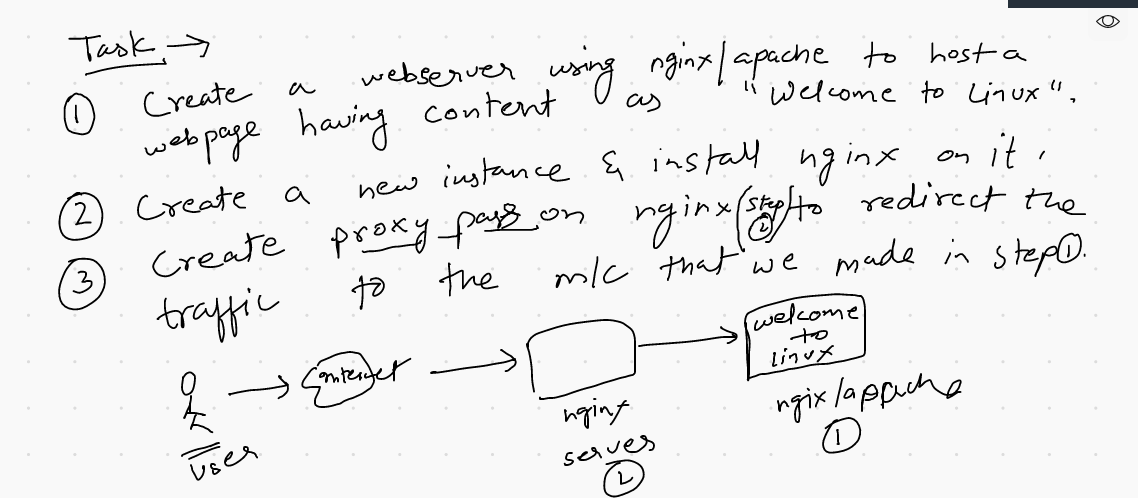 Task →
① Create a webserver using nginx/apache to host a
webpage having content as "Welcome to Linux".
② Create a new instance & install nginx on it.
③ Create proxy pass on nginx (step ②) to redirect the
traffic to the m/c that we made in step ①.
welcome
to
linux
internet
nginx
server
②
ngix/apache
①
User